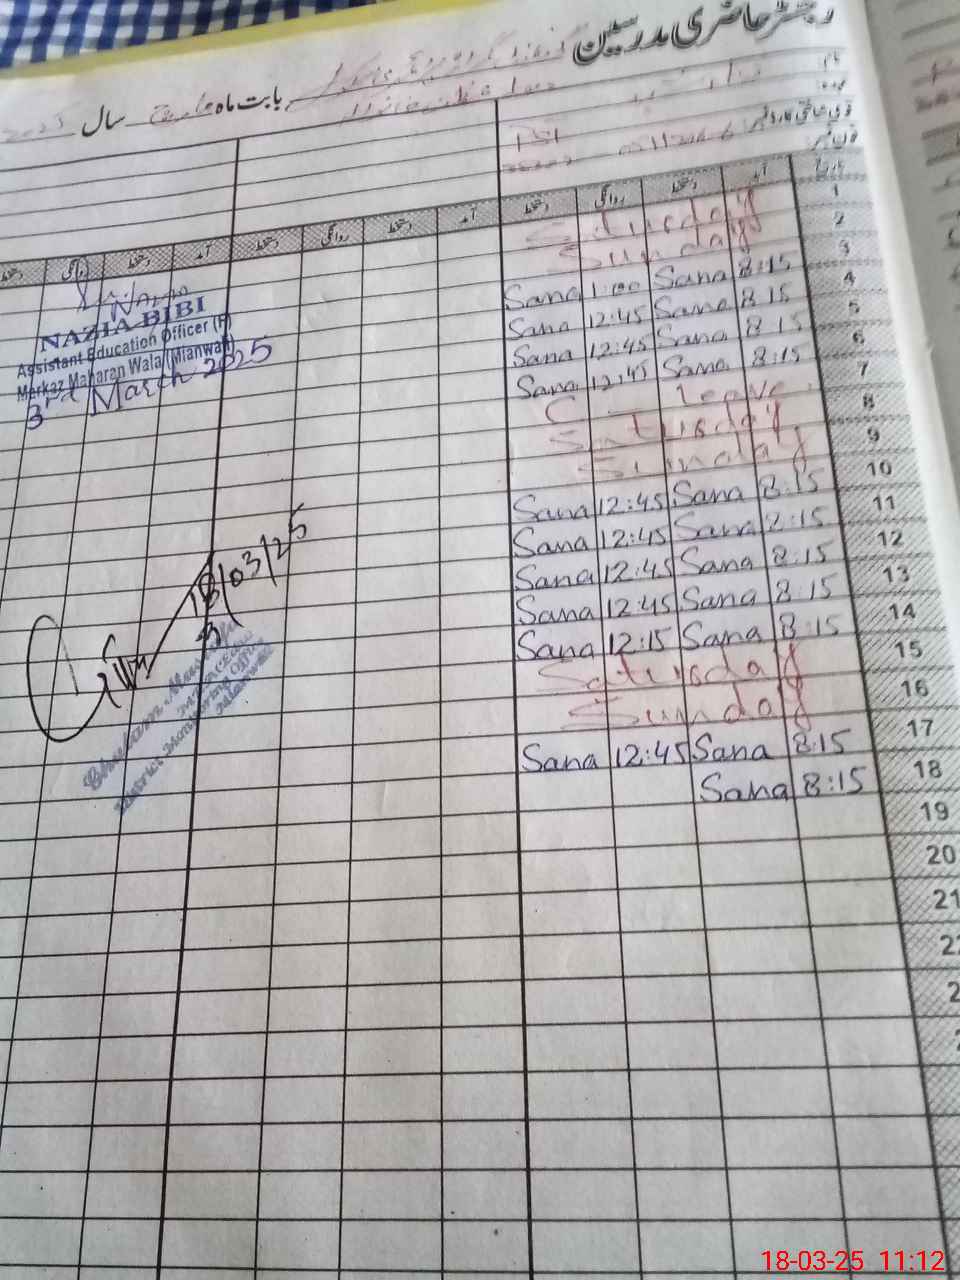 رجسٹر حاضری مدرسین
بابت ماہ مارچ سال 2025
نام
عہدہ
قومی شناختی کارڈ نمبر
فون نمبر
تاریخ آمد دستخط روانگی دستخط آمد دستخط روانگی دستخط آمد دستخط روانگی دستخط
1 Saturday
2 Sunday
3 Sana 1:00 Sana 8:15
4 Sana 12:45 Sana 8:15
5 Sana 12:45 Sana 8:15
6 Sana 12:45 Sana 8:15
7 C leave
8 Saturday
9 Sunday
10 Sana 12:45 Sana 8:15
11 Sana 12:45 Sana 8:15
12 Sana 12:45 Sana 8:15
13 Sana 12:45 Sana 8:15
14 Sana 12:15 Sana 8:15
15 Saturday
16 Sunday
17 Sana 12:45 Sana 8:15
18 Sana 8:15
19
20
21
NAZIA BIBI
Assistant Education Officer (F)
Markaz Maharan Wala (Mianwali)
3rd March 2025
18/03/25
18-03-25 11:12